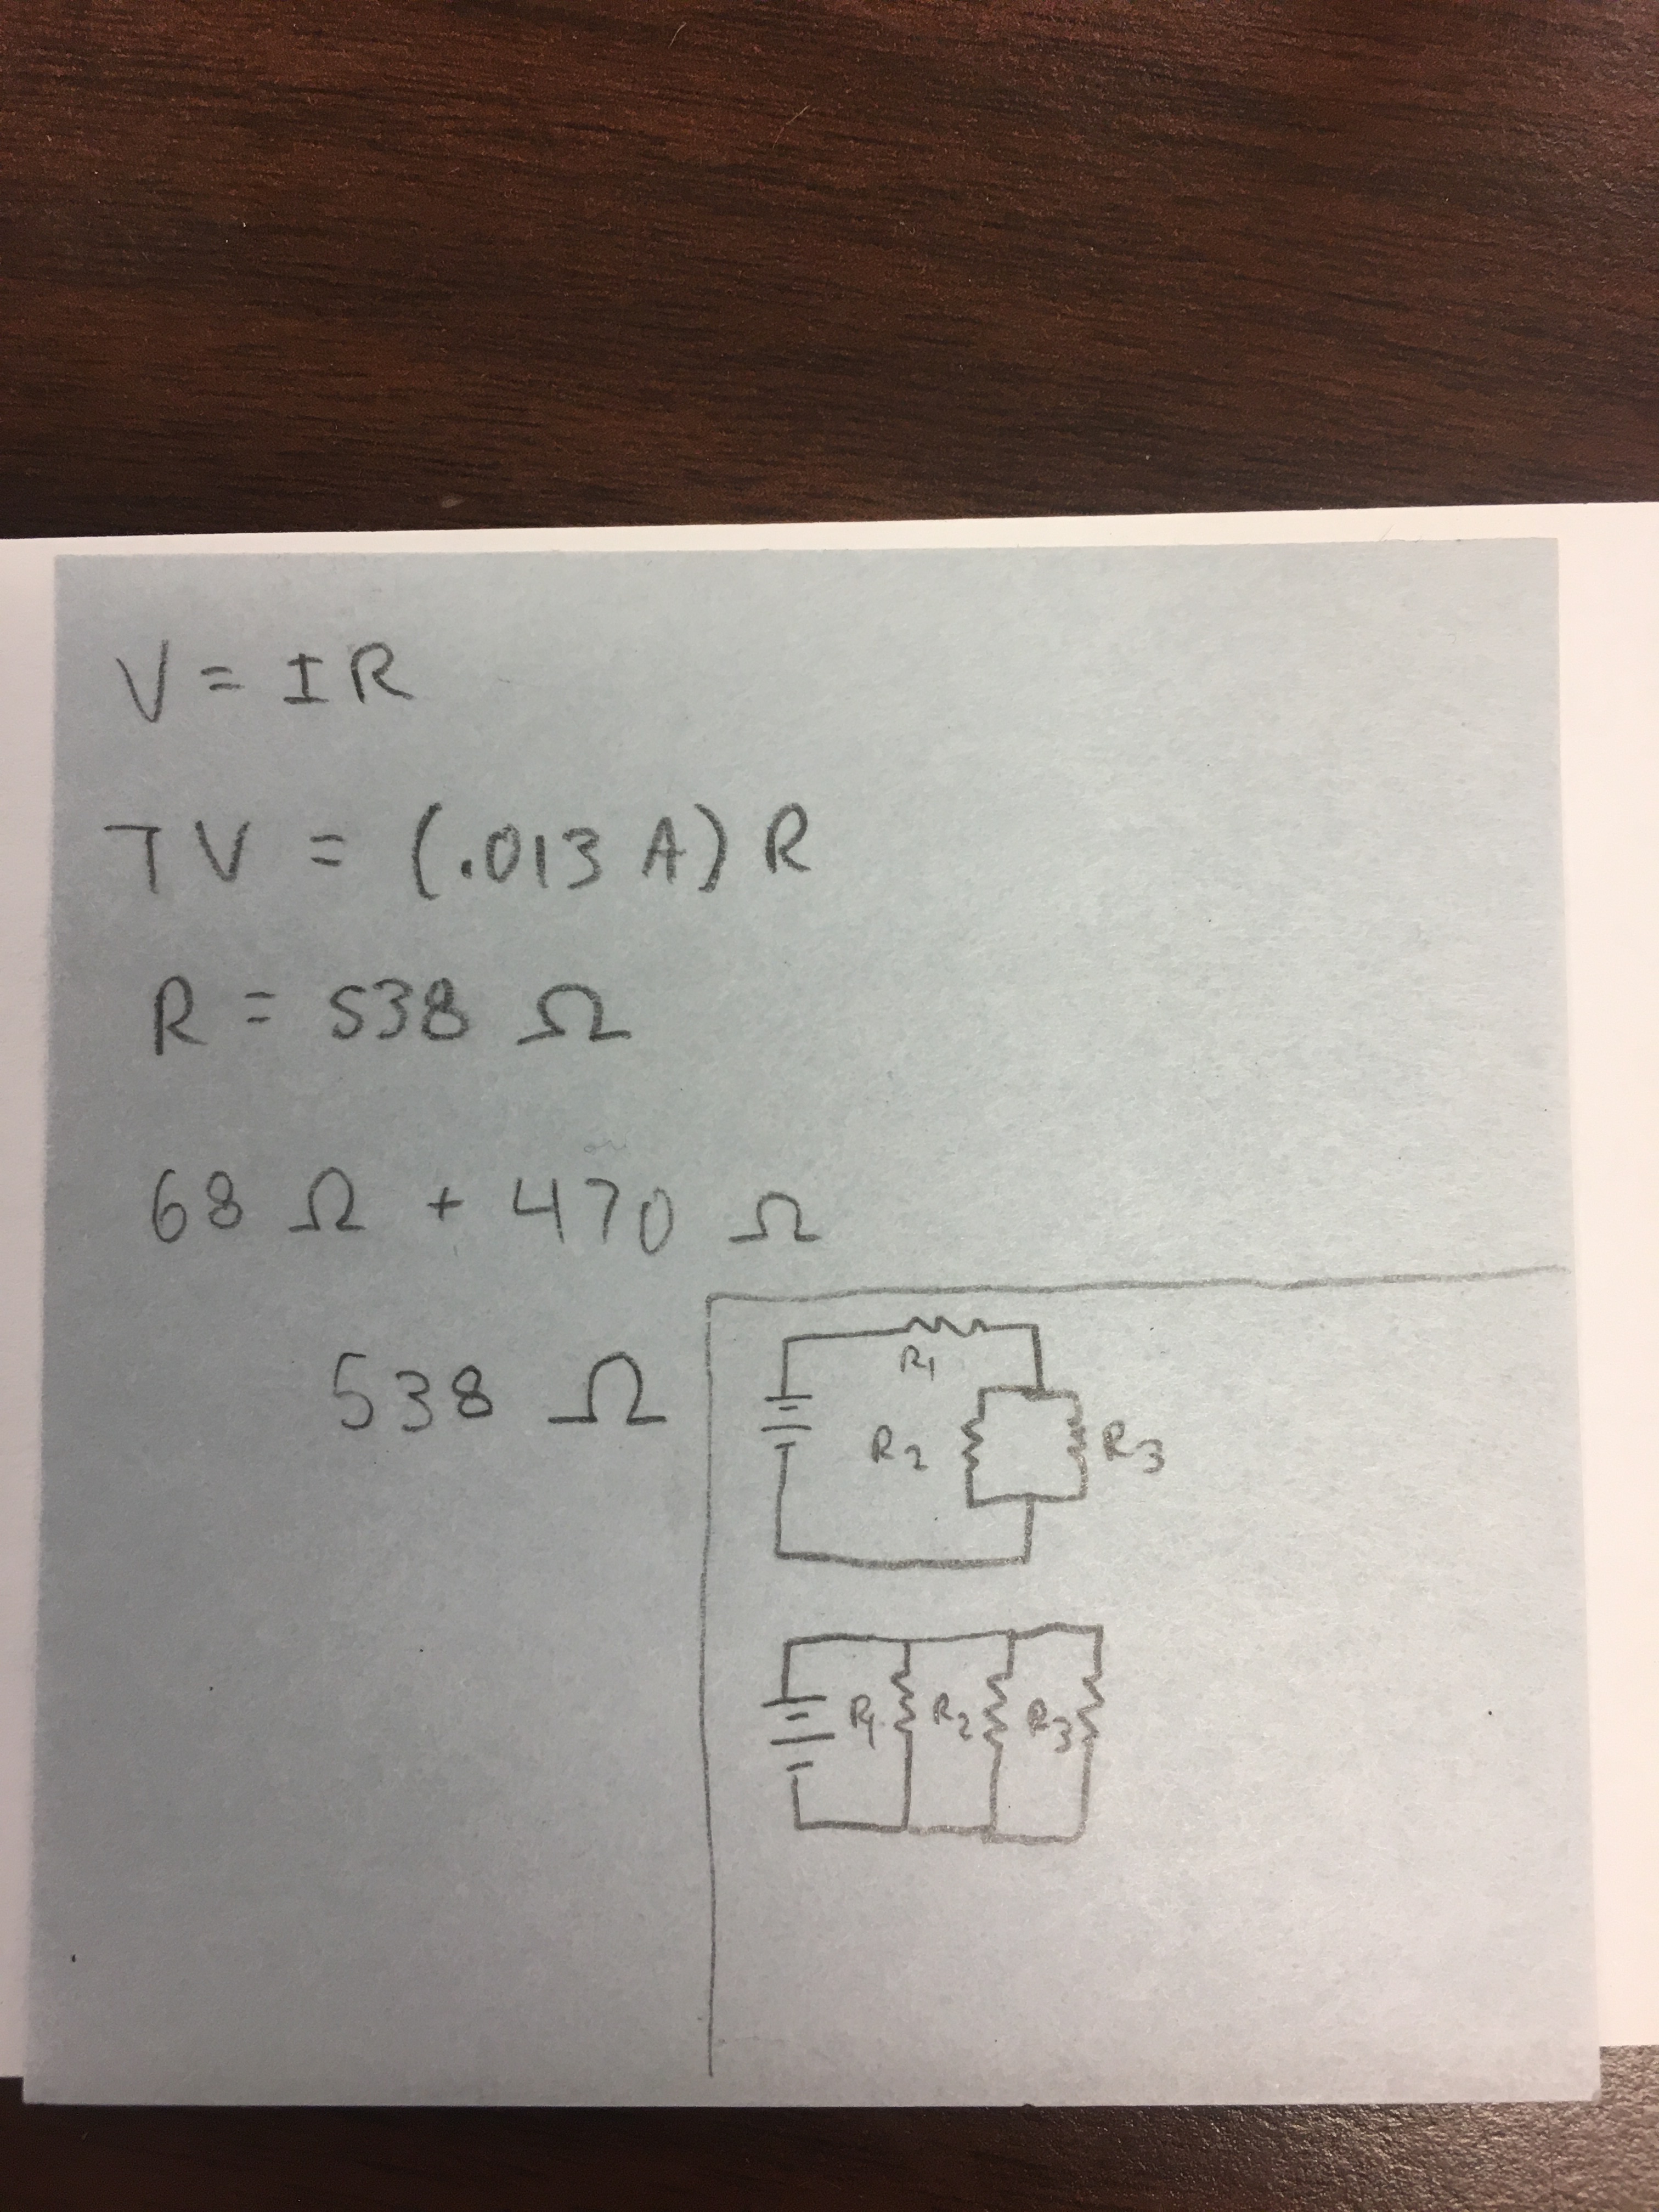 V = IR
7V = (.013 A) R
R = 538 Ω
68 Ω + 470 Ω
538 Ω
R1
R2 R3
R1 R2 R3